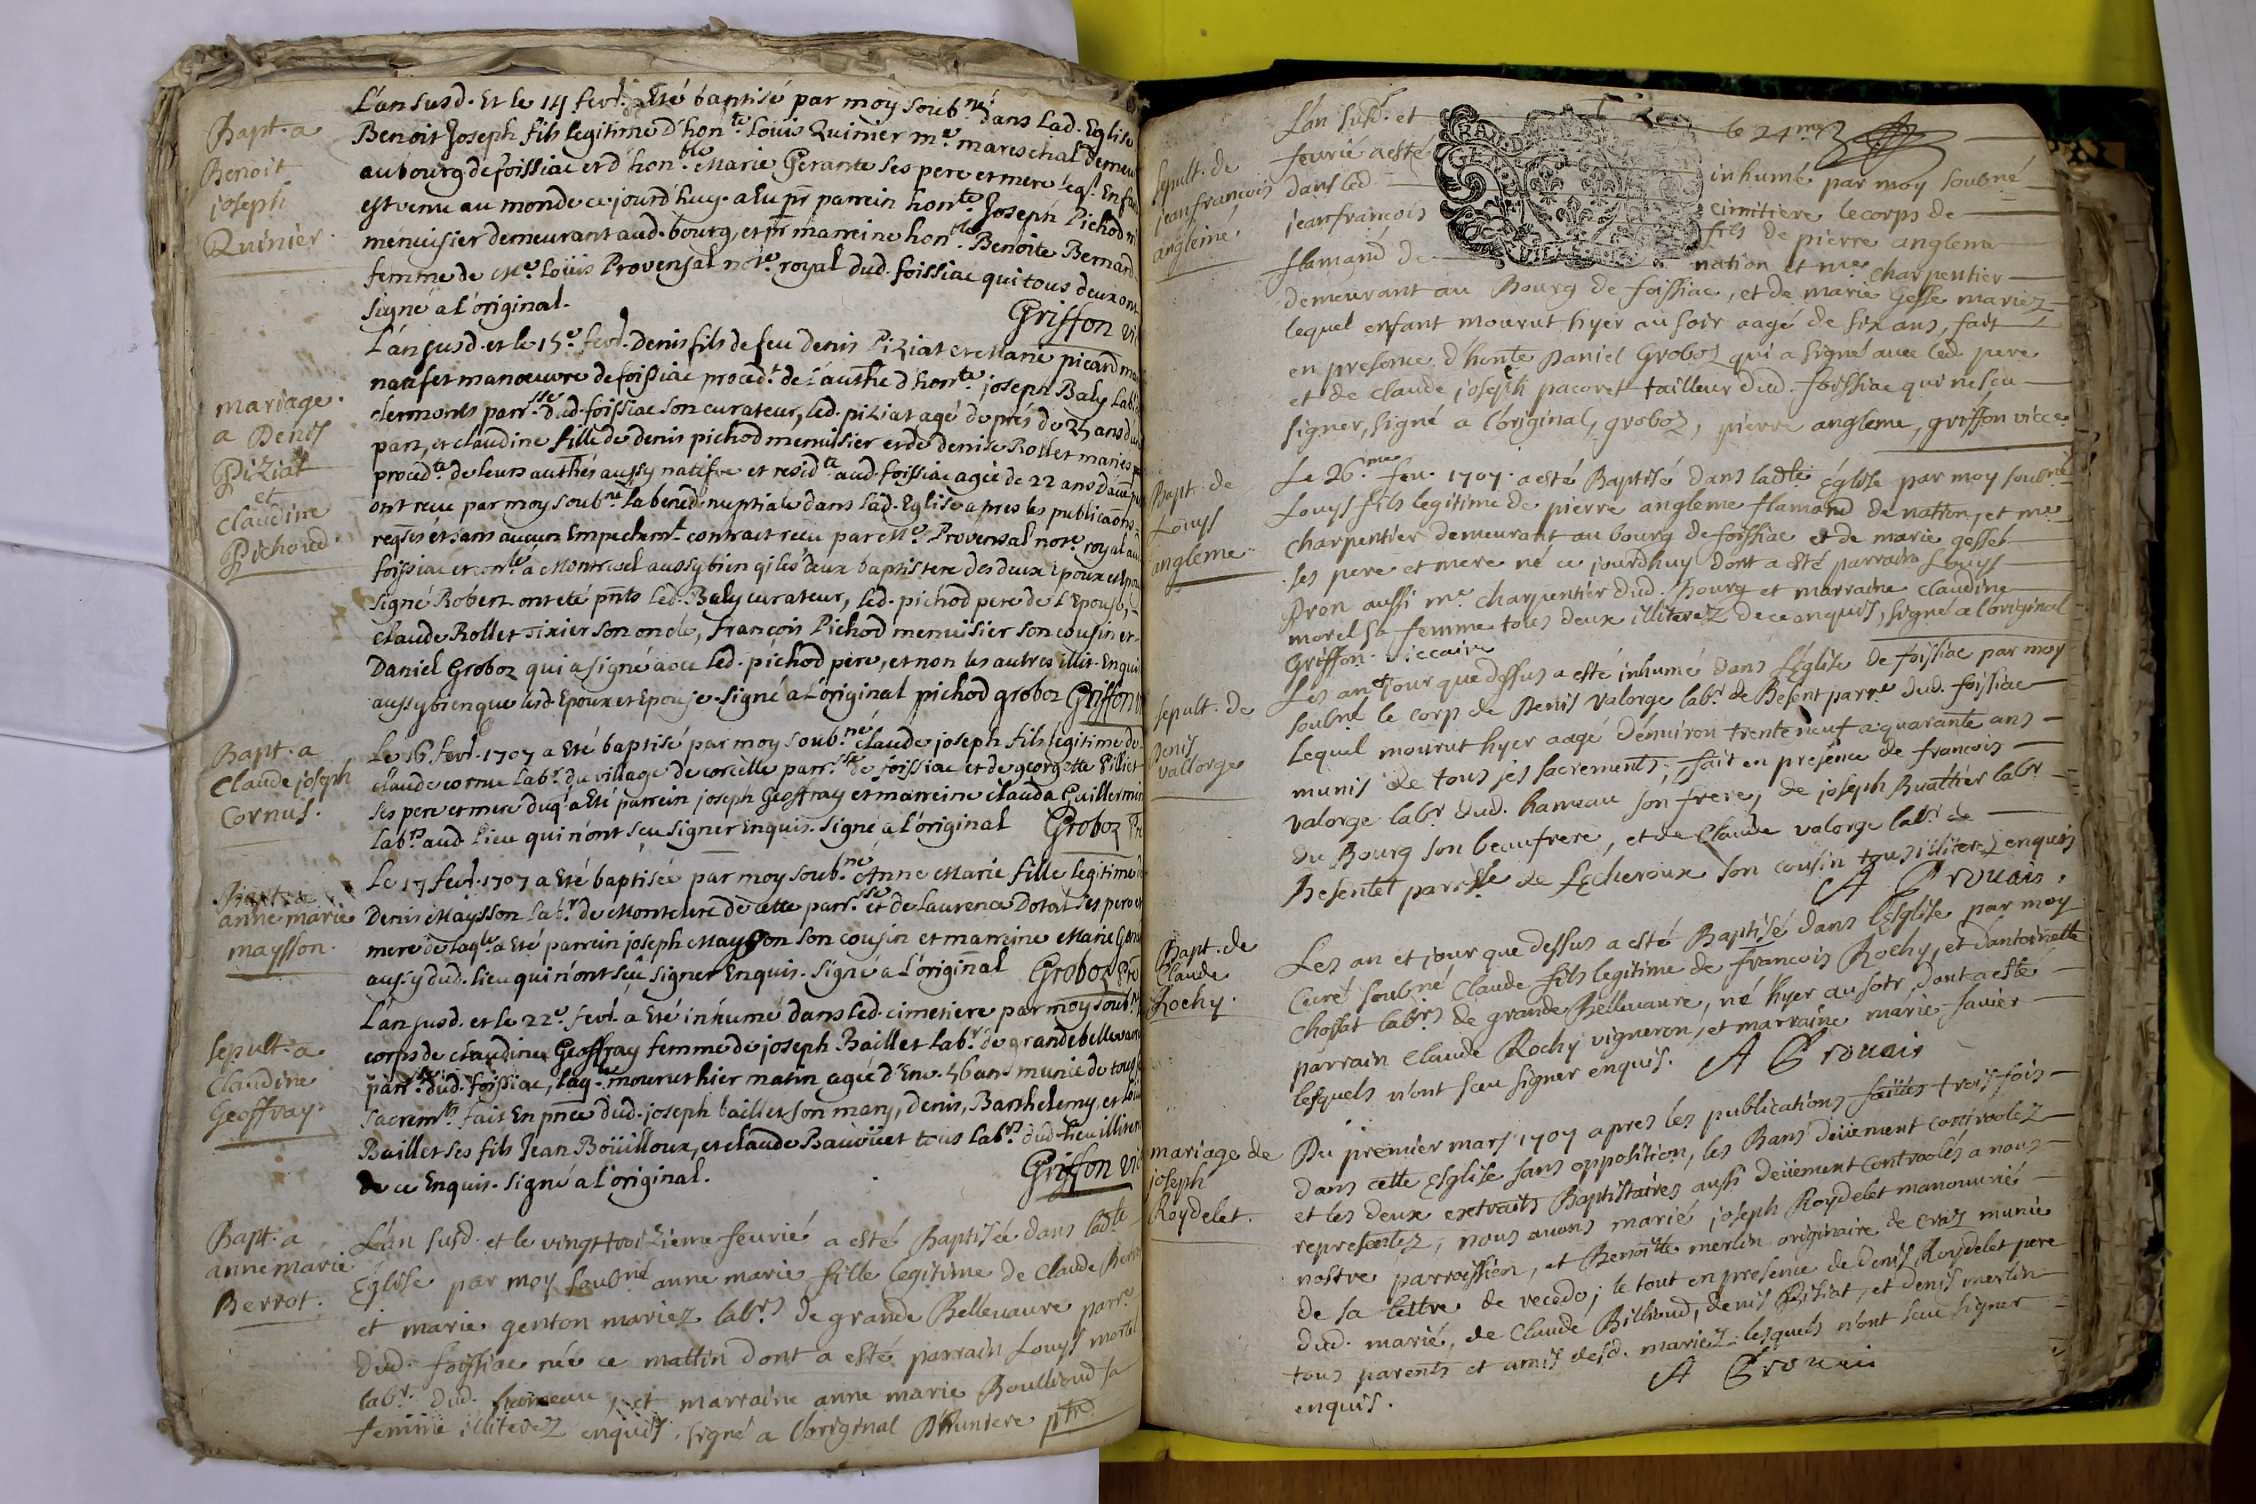 Bapt. a
Benoit
joseph
Quinier.
L'an susd. Et le 14 fevr. a Eté baptisé par moy soub.né dans Lad. Eglise
Benoit Joseph fils legitime d'hon.te Louis Quinier m.e mareschal demeu
au bourg de foissiac et d'hon.ble Marie Gerante ses pere et mere leq.l Enfant
est venu au monde ce jourd'huy. a Eu pr parrein hon.te Joseph Pichod m
menuisier demeurant aud. bourg, et pr marreine hon.ble Benoite Bernard
femme de Me. Loüis Provensal no.re royal dud. foissiac qui tous deux ont
signé a L'original. Griffon vic
mariage.
a Denis
Piziat
et
Claudine
Pichoud
L'an susd. et le 15.e fevr. Denis fils de feu Denis Piziat et Marie picard
natif et manoeuvre de foissiac proced.t de l'auth.e d'hon.te joseph Baly Lab.r
clermonts parr.sse dud. foissiac son curateur, led. piziat agé de prés de 25 ans d'une
part, et claudine fille de denis pichod menuisier et de denise Rollet mariés
proced.te de leurs authés aussy natifve et resid.te aud. foissiac agée de 22 ans d'autre
ont reçu par moy soub.né La bened. nuptiale dans Lad. Eglise apres les publicaons
reqses et sans aucun Empechem.t contract reçu par Me. Provensal no.re royal au
foissiac et con.lé a Montrevel aussy bien q; les deux baptistere des deux Epoux et
signé Robert. ont eté pnts Led. Baly curateur, led. pichod pere de L'Epouse,
claude Rollet Tixier son oncle, françois Pichod menuisier son cousin et
Daniel Groboz qui a signé avec Led. pichod pere, et non les autres illit. Enquis
aussy bien que lesd. Epoux et Epouse. signé a L'original pichod groboz Griffon
Bapt. a
Claude joseph
Cornus.
Le 16 fevr. 1707 a Eté baptisé par moy soub.né Claude joseph fils legitime de
claude cornu Lab.r du village de corcelle parr.sse de foissiac et de georgette Pilliet
ses pere et mere duq.l a Eté parrein joseph Geoffray et marreine clauda Guillermin
Lab.rs aud. lieu qui n'ont sçu signer Enquis. signé a L'original Groboz
Bapt. a
anne marie
maysson.
Le 17 fevr. 1707 a Eté baptisée par moy soub.né Anne Marie fille legitime
Denis Maysson Lab.r de de cette parr.sse et de Laurence Dotal ses pere et
mere de Laq.le a Eté parrein joseph Maysson son cousin et marreine Marie
aussy dud. lieu qui n'ont sçû signer Enquis. signé a L'original Groboz
sepult. a
Claudine
Geoffray.
L'an susd. et le 22.e fevr. a Eté inhumé dans Led. cimetiere par moy soub.né
corps de claudine Geoffray femme de joseph Baillet Lab.r de grande bellevavre
parr.sse dud. foissiac, laq.le mourut hier matin agée d'Env. 56 ans munie de tous
sacrem.ts fait En pnce dud. joseph baillet son mary, denis, Barthelemy, et
Baillet ses fils Jean Boüilloux, et claude Bauoüet tous Lab.rs dud. lieu illiteres
de ce Enquis. signé a L'original. Griffon vic
Bapt. a
anne marie
Berrot.
L'an susd. et le vingt troizieme feurié a esté Baptisée dans lad.te
Eglise par moy soubné anne marie fille legitime de Claude
et marie genton mariez lab.rs de grande Bellevaure parr.e
dud. foissiac née ce mattin dont a esté parrain Louys morel
lab.r dud. hameau, et marraine anne marie Boullioud sa
femme illiterez enquis. signé a l'original Bruniere ptre
sepult. de
jean francois
angleme.
L'an susd. et le 24.me
feurié a esté inhumé par moy soubné
dans led. cimitiere le corps de
jean francois fils de pierre angleme
flamand de nation et me charpentier
demeurant au Bourg de foissiac, et de marie Gesse mariez
lequel enfant mourut hyer au soir aagé de six ans, fait
en presence d'honte Daniel Groboz qui a signé auec led. pere
et de Claude joseph pacoret tailleur dud. foissiac qui ne sçeu
signer, signé a l'original, groboz, pierre angleme, griffon vicce.
Bapt. de
Louys
angleme
Le 26.me feu. 1707 a esté Baptisé dans ladte Eglise par moy soubné
Louys fils legitime de pierre angleme flamand de nation, et me
charpentier demeurant au bourg de foissiac et de marie gesset
ses pere et mere né ce jourdhuy dont a esté parrain Louys
Dron aussi me. charpentier dud. bourg et marraine claudine
morel sa femme tous deux illiterez de ce enquis, signé a l'original
Griffon. viccaire
sepult. de
Denis
vallorge
Les an et jour que dessus a esté inhumé dans l'Eglise de foissiac par moy
soubné le corp de Denis valorge lab.r de Besent parr.e dud. foissiac
Lequel mourut hyer aagé d'enuiron trente neuf a quarante ans
munis de tous ses sacrements; fait en presence de francois
valorge lab.r dud. hameau son frere, de joseph Buathier lab.r
du Bourg son beaufrere, et de Claude valorge lab.r de
Besentet parr.sse de Lecheroux son cousin tous illiterez enquis
A Crouais.
Bapt. de
Claude
Rochy.
Les an et jour que dessus a esté Baptisé dans l'Esglise par moy
Curé soubné Claude fils legitime de francois Rochy, et d'antoinette
chossat lab.rs de grande Bellevaure, né hyer au soir, dont a esté
parrain Claude Rochy vigneron, et marraine marie fauier
lesquels n'ont sceu signer enquis. A Crouais
mariage de
joseph
Roydelet.
Du premier mars 1707 apres les publications faittes trois fois
dans cette Esglise sans opposition, les Bans deüement controolez
et les deux extraits Baptistaires aussi deüement controolés a nous
represantez, nous auons marié joseph Roydelet manouurié
nostre parroissien, et Benoitte merlin originaire de Cras munie
de sa lettre de recedo; le tout en presence de denis Roydelet pere
dud. marié, de Claude Billioud, denis Pisiat, et denis merlin
tous parents et amis desd. mariez lesquels n'ont sceu signer
enquis. A Crouais